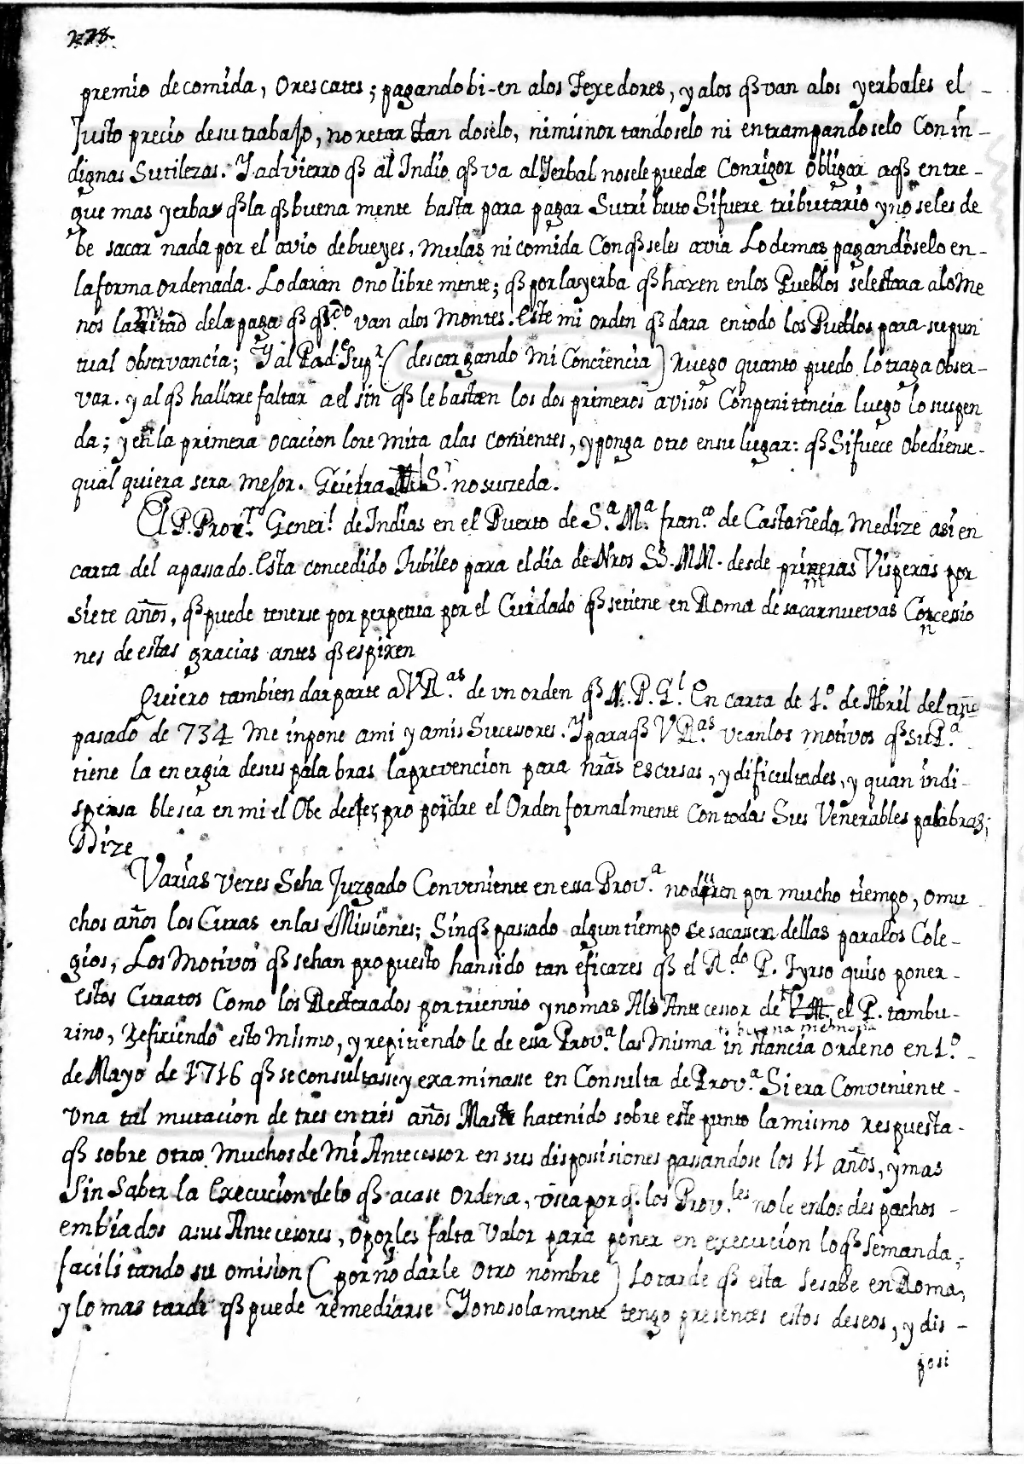 278.
premio de comida, O rescates; pagando bi-en alos Texedores, y alos q̃ van alos yerbales el
Justo precio desu trabajo, no retardandoselo, ni minorandoselo ni entrampandoselo Con in-
dignas Sutilezas. Y advierto q̃ al Indio q̃ va al Yerbal nosele puede Con rigor obligar aq̃ entre-
gue mas yerba q̃ la q̃ buena mente basta para pagar Su tributo Si fuere tributario y no seles de
be sacar nada por el avio de bueyes, Mulas ni comida Con q̃ seles avia Lodemas pagandoselo en-
la forma Ordenada. Lo daran O no libre mente; q̃ por la yerba q̃ hazen enlos Pueblos seles dara alo Me
nos la mitad dela paga q̃ van alos Montes. Este mi orden q̃ dara entodo los Pueblos para su pun
tual Observancia; Y al Pad. Sup.r (descargando Mi Conciencia) Ruego quanto puedo lo haga Obser-
var. y al q̃ hallare faltar a el sin q̃ le basten los dos primeros avisos Con penitencia luego lo suspen
da; y en la primera ocacion lo re mita a las Corrientes, y ponga otro en su lugar: q̃ Si fuere Obediente
qual quiera sera Mejor. Quiera el S.r no suceda.
El P. Pro.r Gener.l de Indias en el Puerto de S.a M.a fran.co de Castañeda Medize asi en
carta del a passado. Esta concedido Jubileo para el dia de Nros SS. MM. desde primeras Visperas por
siete años, q̃ puede tenerse por perpetua por el Cuidado q̃ se tiene en Roma de sacar nuevas Concessio
nes de estas gracias antes q̃ espiren
Quiero tambien dar parte a VR.as de vn orden q̃ N. P. G.l En carta de 1.o de Abril del año
pasado de 734 Me inpone ami y amis Sucessores. Y para q̃ VR.as vean los motivos q̃ su P.a
tiene la energia desus palabras la prevencion para nr̃as escusas, y dificultades, y quan indi-
spensa ble sea en mi el Obedecer, pro pondre el Orden formalmente Con todas Sus Venerables palabras;
Dize
Varias Vezes Se ha Juzgado Conveniente en essa Prov.a no duren por mucho tiempo, O mu
chos años los Curas en las Missiones; Sin q̃ passado algun tiempo se sacassen dellas para los Cole-
gios, Los Motivos q̃ se han propuesto han sido tan eficazes q̃ el R.do P. Tyrso quiso poner-
estos Curatos Como los Rectorados por triennio y no mas Al Ante cessor de VR. el P. tambu-
to buena memoria
rino, Refiriendo esto Mismo, y repitiendo le de essa Prov.a las Misma instancia Ordeno en 1.o
de Mayo de 1716 q̃ se consultasse y examinasse en Consulta de Prov.a Si era Conveniente-
Vna tal mutacion de tres en tres años Mas ha tenido sobre este punto la mismo respuesta-
q̃ sobre otros Muchos de Mi Antecessor en sus disposiciones passandose los 11 años, y mas
Sin Saber la Execucion delo q̃ acase Ordena, o sea por q̃ los Prov.les no le en los despachos-
embiados asus Antecesores, O por les falta Valor para poner en execucion lo q̃ se manda,
facilitando su omision (por no darle Otro nombre) Lo tarde q̃ esta se sabe en Roma,
y lo mas tarde q̃ puede remediarse Yo no solamente tengo presentes estos deseos, y dis-
posi